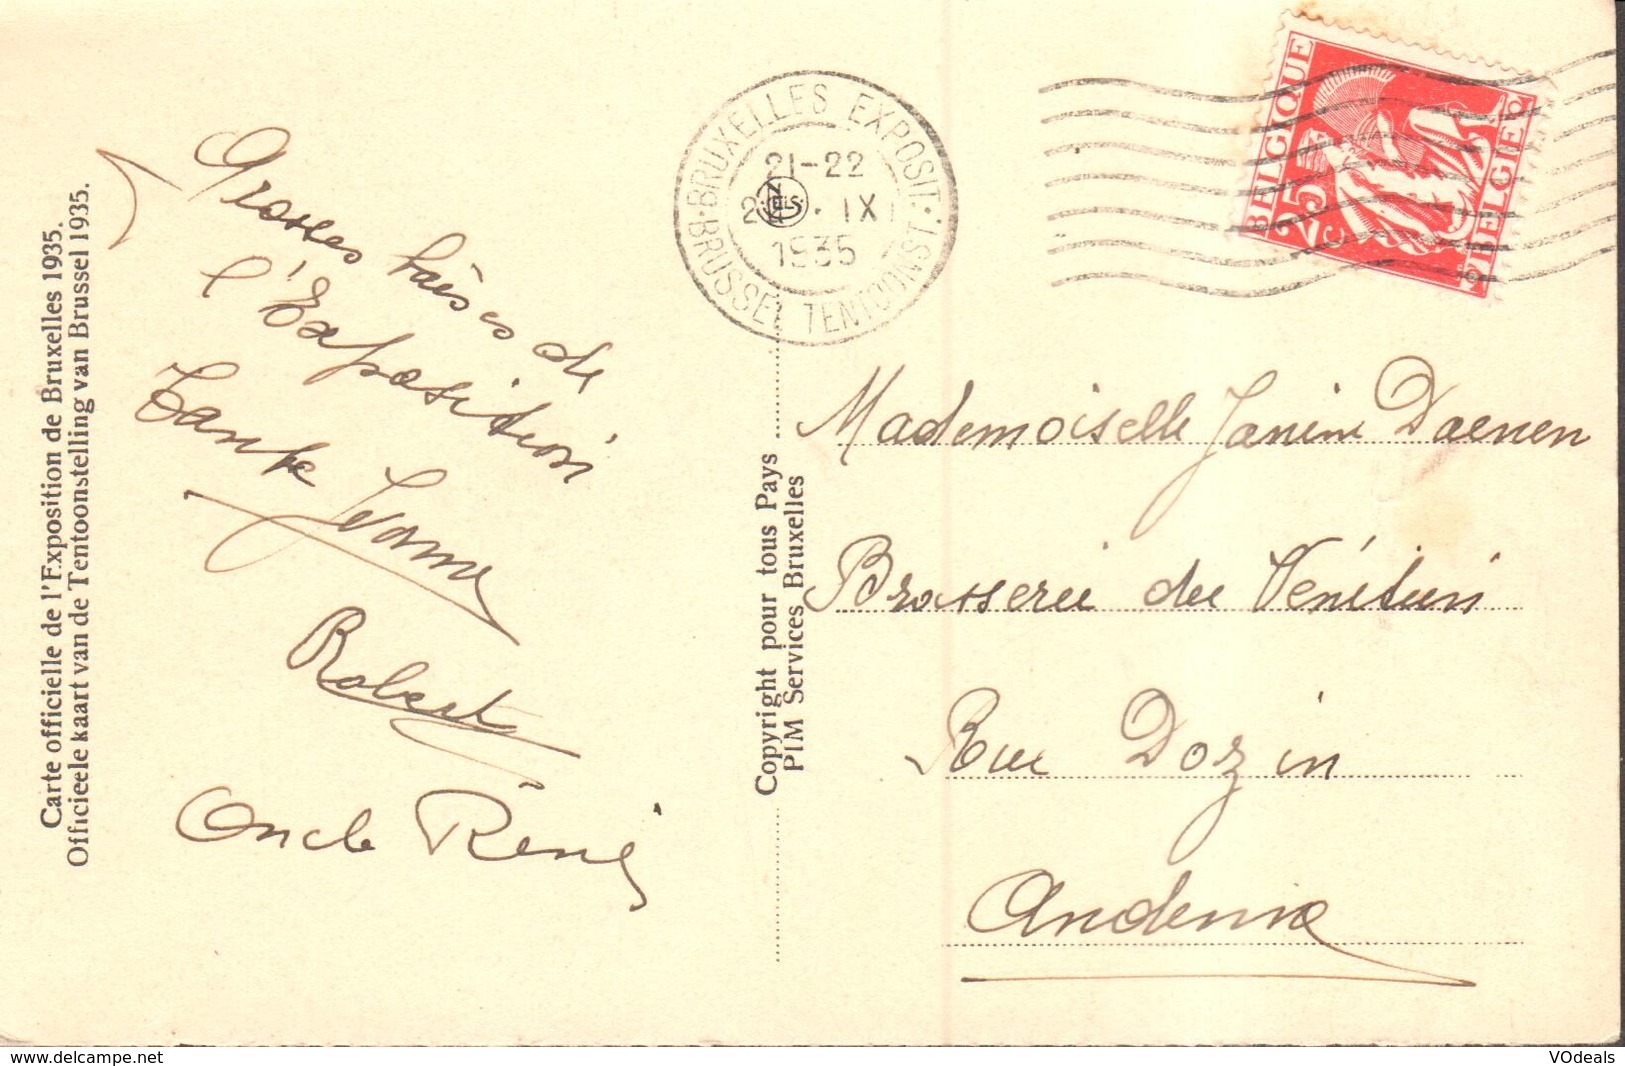 Carte officielle de l'Exposition de Bruxelles 1935.
Officieele kaart van de Tentoonstelling van Brussel 1935.
Groses baises de
l'Exposition
Tante Jeanne
Robert
Oncle René
Copyright pour tous Pays
PIM Services Bruxelles
BRUXELLES EXPOSIT.
21-22
IX
1935
BRUSSEL TENTOONST.
BELGIQUE
25 c
BELGIË
Mademoiselle Janine Daenen
Brasserie du Vénitien
Rue Dozin
Andenne
delcampe.net
VOdeals